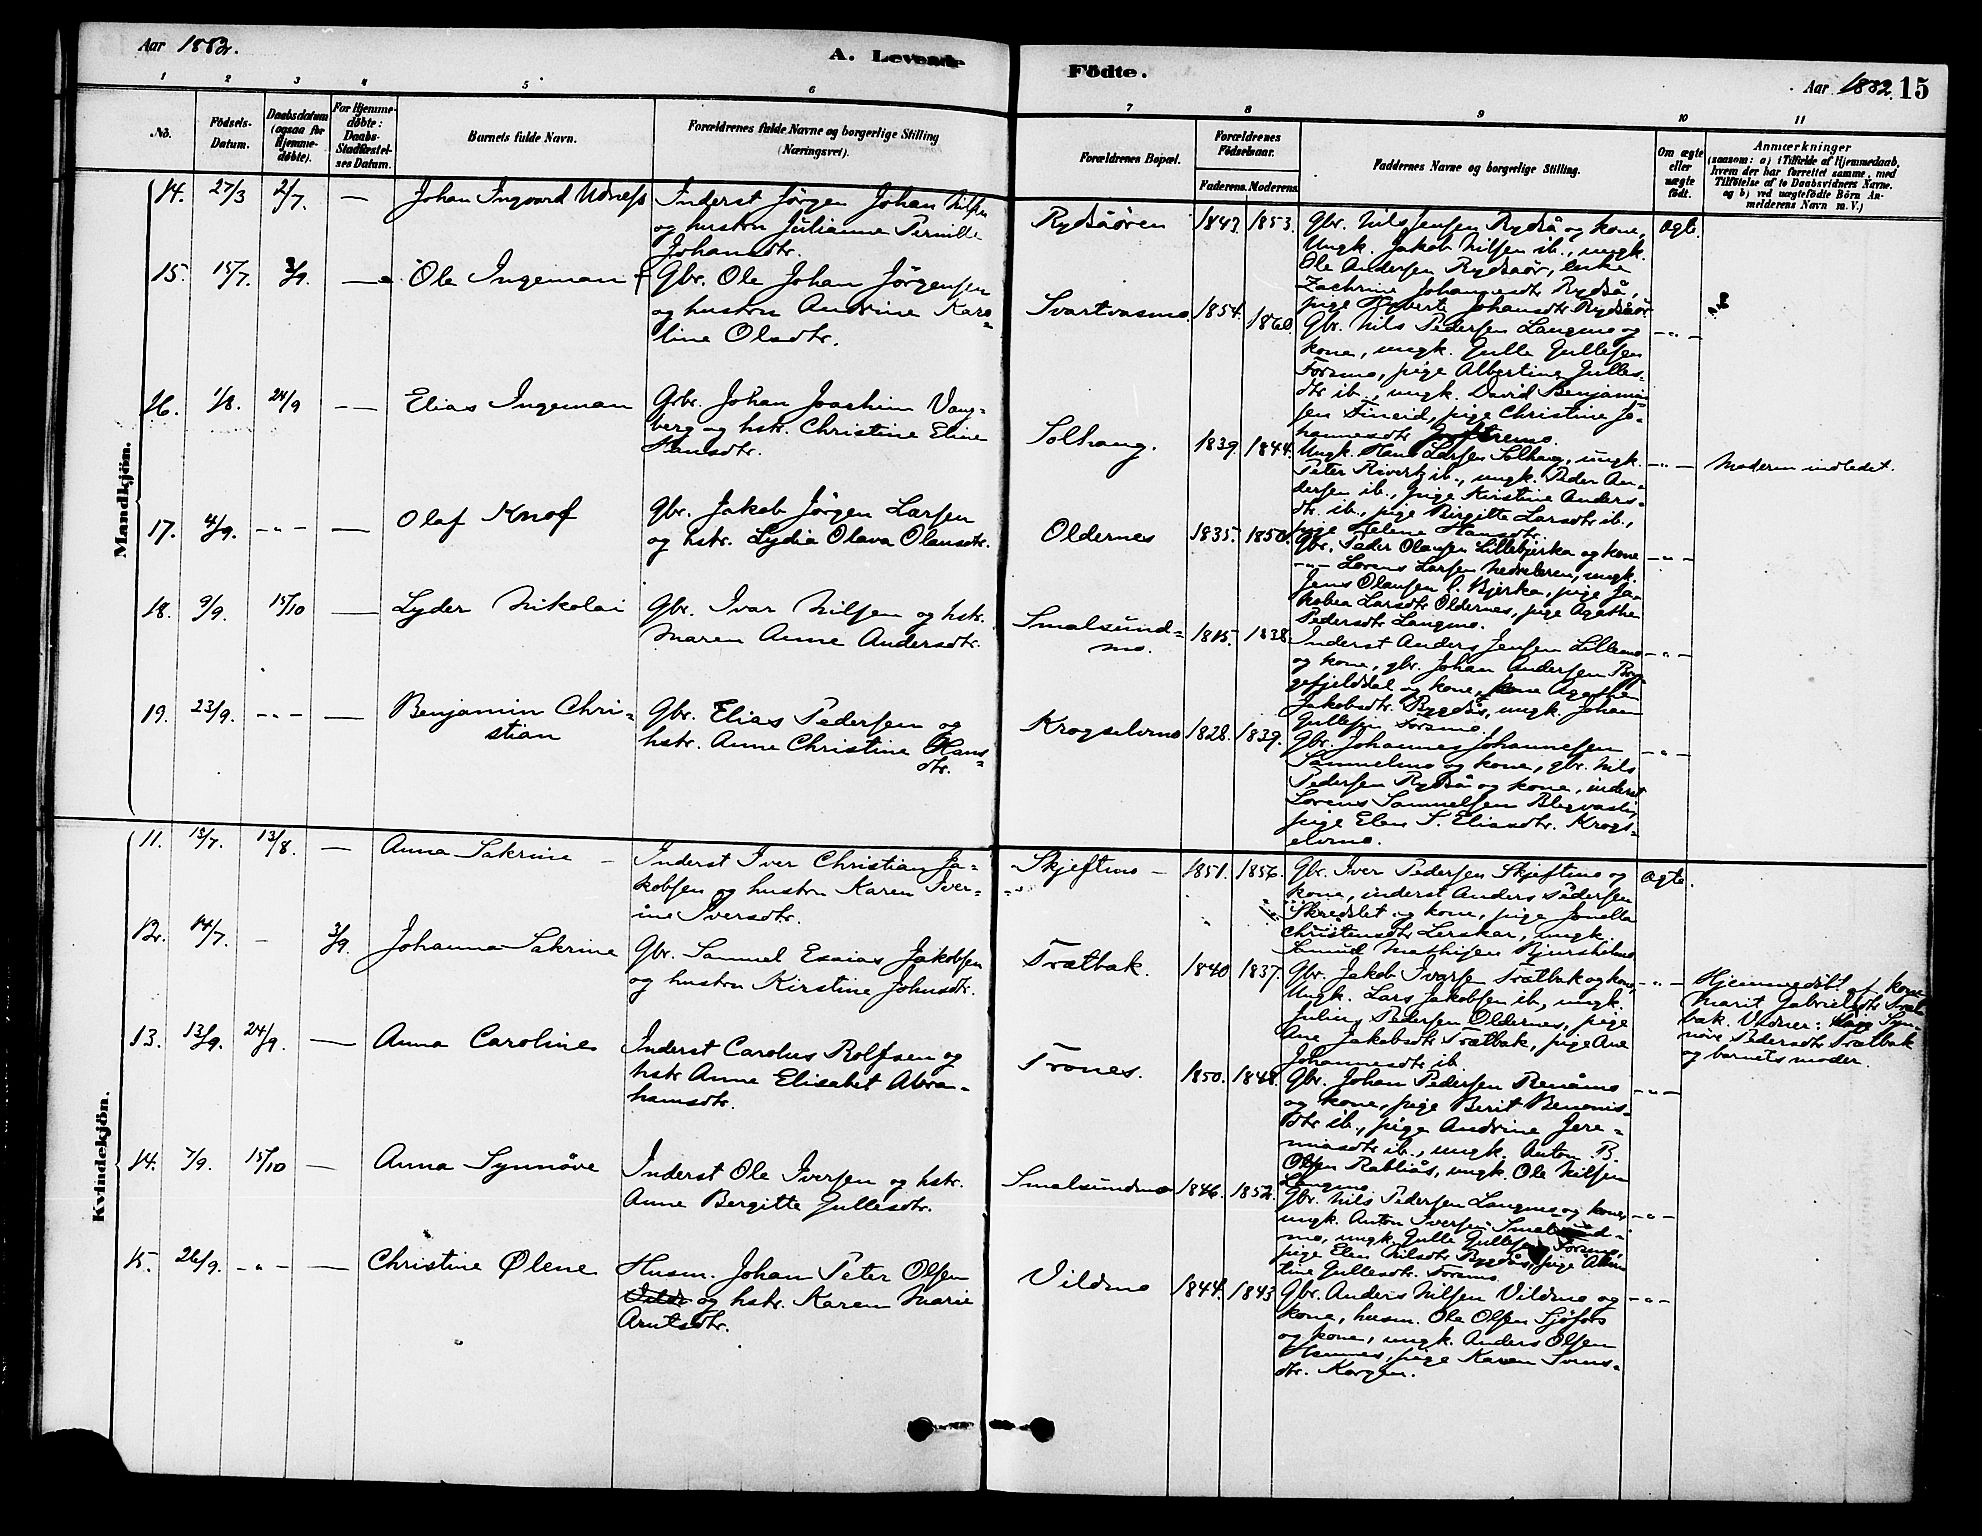 Aar 1882.
A. Levende
Födte.
Aar 1882. 15
1 2 3 4 5 6 7 8 9 10 11
No.
Födsels-
Datum.
Daabsdatum
(ogsaa for
Hjemme-
døbte).
For Hjemme-
døbte:
Daabs-
Stadfæstel-
ses Datum.
Barnets fulde Navn.
Forældrenes fulde Navne og borgerlige Stilling
(Næringsvei).
Forældrenes Bopæl.
Forældrenes
Födselsaar.
Faderens. Moderens.
Faddernes Navne og borgerlige Stilling.
Om ægte
eller
uægte
födt.
Anmærkninger
(saasom: a) i Tilfælde af Hjemmedaab,
hvem der har forrettet samme, med
Tilföielse af to Daabsvidners Navne.
og b) ved uægtefödte Börn An-
melderens Navn m. V.)
Mandkjön.
14. 27/3 2/7. — Johan Ingvard Udnæss
Inderst Jørgen Johan Nilsen
og hustru Julianna Pernille
Johansdtr.
Rydsåören 1843. 1853.
Gbr. Nils Jensen Rydså og kone,
Ungk. Jakob Nilsen ib., ungk.
Ole Andersen Rydsaör, enke
Zachrine Johannesdtr Rydså,
pige Hyberta Johansdtr. Rydsåör
ægte.
15. 15/7. 3/9. — Ole Ingeman
Gbr. Ole Johan Jörgensen
og hustru Andrine Karo-
line Olsdtr.
Svartvasmo. 1854. 1860.
Gbr. Nils Pedersen Langmo og
kone, ungk. Gulle Gullesen
Forsmo, pige Albertine Gulles-
dtr ib., ungk. David Benjamin-
sen Fineid, pige Christine Jo-
hannesdtr
—„—
16. 1/8. 24/9 — Elias Ingeman
Gbr. Johan Joachim Vang-
berg og hstr. Christine Eline
Hansdtr.
Solhaug. 1839. 1844.
Ungk. Hans Larsen Solhaug, ungk.
Peter Rivertz ib., ungk. Peder An-
dersen ib., pige Kirstine Anders-
dtr. ib., pige Birgitte Larsdtr ib.,
pige Helene Hansdtr.
—„— Moderen indledet.
17. 4/9. —„— — Olaf Knof
Gbr. Jakob Jörgen Larsen
og hstr. Lydia Olava Olausdtr.
Oldernes 1835. 1850.
Gbr. Peder Olausen Lillebjerka og kone
—„— Lorens Larsen Nedreleren, ungk.
Jens Olausen l. Bjerka, pige Ja-
kobea Larsdtr Oldernes, pige Agathe
Pedersdtr Langmo.
—„—
18. 9/9. 15/10 — Lyder Nikolai
Gbr. Ivar Nilsen og hstr.
Maren Anne Andersdtr.
Smalsund-
mo. 1815. 1838.
Inderst Anders Jensen Lillemo
og kone, gbr. Johan Andersen Byg-
gefjelddal og kone, Agathe
Jakobsdtr. Rygdås, ungk. Johan
Gullesen Forsmo.
—„—
19. 23/9. —„— — Benjamin Chri-
stian
Gbr. Elias Pedersen og
hstr. Anne Christine Hans-
dtr.
Krogselvmo 1828. 1839.
Gbr. Johannes Johannesen
Sammelmo og kone, gbr. Nils
Pedersen Rydså og kone, inderst
Lorens Samuelsen Blegvasli,
pige Elen S. Eliasdtr. Krogs-
elvmo.
—„—
Kvindekjön.
11. 13/7. 13/8. — Anna Sakrine
Inderst Iver Christian Ja-
kobsen og hustru Karen Iver-
ine Iversdtr.
Skjeftmo — 1851. 1856.
Gbr. Iver Pedersen Skjeftmo og
kone, inderst Anders Pedersen
Skredslet og kone, pige Jonella
Christensdtr Lerskar, ungk.
Amund Mathisen
ægte.
12. 14/7. — 3/9. Johanna Sakrine
Gbr. Samuel Esaias Jakobsen
og hustru Kirstine Johnsdtr.
Trætbak. 1840 1837.
Gbr. Jakob Ivarsen Trætbak og kone,
Ungk. Lars Jakobsen ib., ungk.
Julius Pedersen Oldernes, pige
Ane Jakobsdtr Trætbak, pige Ane
Johannesdtr ib.
—„—
Hjemmedöbt af kone
Marit Gabrielsdtr Træt-
bak. Vidner: Syn-
növe Pedersdtr Trætbak
og barnets moder.
13. 13/9. 24/9. — Anna Caroline
Inderst Carolus Rolfsen og
hstr Anne Elisabet Abra-
hamsdtr.
Trones. 1850. 1848.
Gbr. Johan Pedersen Renåmo
og kone, pige Berit Benonis-
dtr ib., pige Andrine Jere-
miasdtr ib., ungk. Anton B.
Olsen Rabliås, ungk. Ole Nilsen
Langmo.
—„—
14. 7/9. 15/10 — Anna Synnöve
Inderst Ole Iversen og hstr.
Anne Bergitte Gullesdtr.
Smalsundmo 1846. 1852.
Gbr. Nils Pedersen Langmo og kone,
ungk. Anton Iversen Smalsund-
mo, ungk. Gulle Gullesen Forsmo,
pige Elen Nilsdtr Rygdås, pige Alber-
tine Gullesdtr. Forsmo.
—„—
15. 26/9. —„— — Christine Ølene
Husm. Johan Peter Olsen
Vildm og hstr. Karen Marie
Arntsdtr.
Vildmo 1844. 1843
Gbr. Anders Nilsen Vildmo og
kone, husm. Ole Olsen Sjöfors
og kone, ungk. Anders Olsen
Hemnes, pige Karen Svens-
dtr. Korgen.
—„—